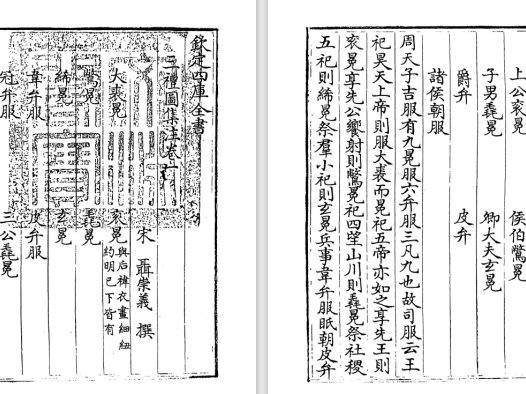 欽定四庫全書
三禮圖集注卷一
宋 聶崇義 撰
大裘冕 袞冕 與后褘衣畫細紐約明已下皆有
鷩冕 毳冕
絺冕 玄冕
韋弁服 皮弁服
冠弁服 三公毳冕
上公袞冕 侯伯鷩冕
子男毳冕 卿大夫玄冕
爵弁 皮弁
諸侯朝服
周天子吉服有九冕服六弁服三凡九也故司服云王
祀昊天上帝則服大裘而冕祀五帝亦如之享先王則
袞冕享先公饗射則鷩冕祀四望山川則毳冕祭社稷
五祀則絺冕祭羣小祀則玄冕兵事韋弁服眡朝皮弁